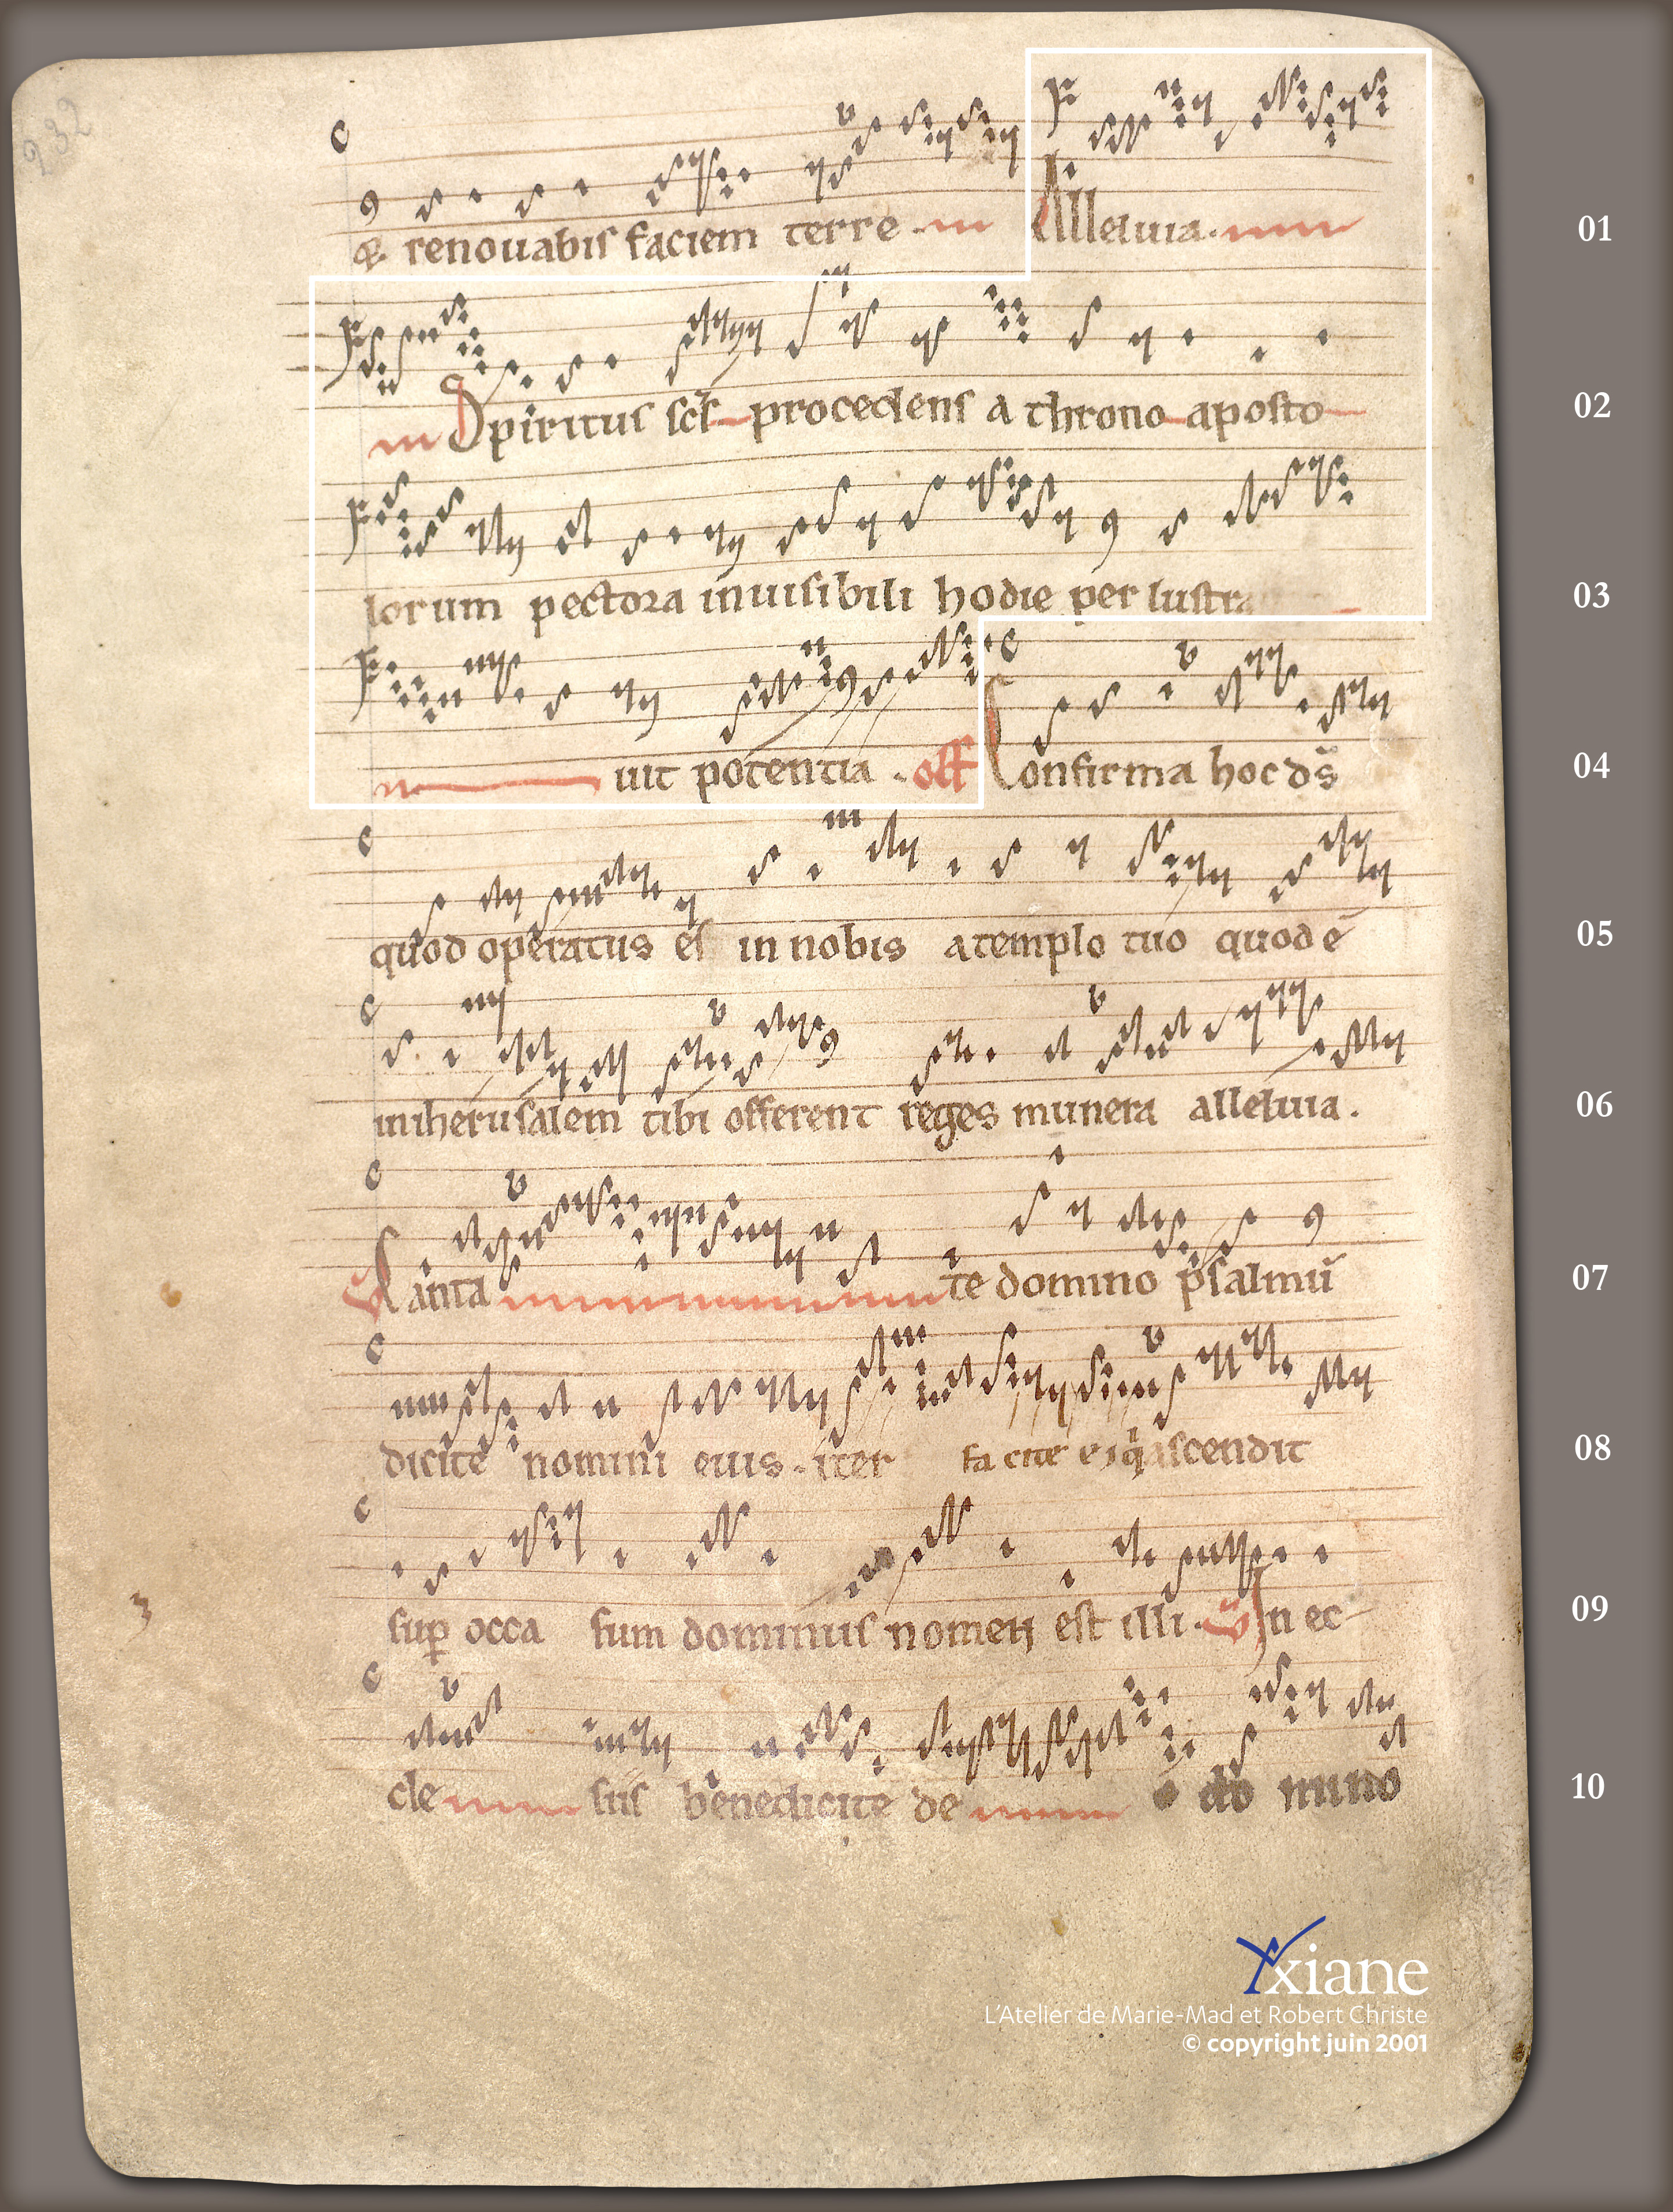 232
& renouabis faciem terre . Alleluia . 01
Spiritus scs procedens a throno aposto 02
lorum pectora inuisibili hodie per lustra 03
uit potentia . off Confirma hoc ds 04
quod operatus es in nobis a templo tuo quod ē 05
in iherusalem tibi offerent reges munera alleluia . 06
Canta te domino psalmū 07
dicite nomini eius . iter facite ei q ascendit 08
sup occa sum dominus nomen est illi . In ec 09
cle siis benedicite de o do mino 10
xiane
L'Atelier de Marie-Mad et Robert Christe
© copyright juin 2001